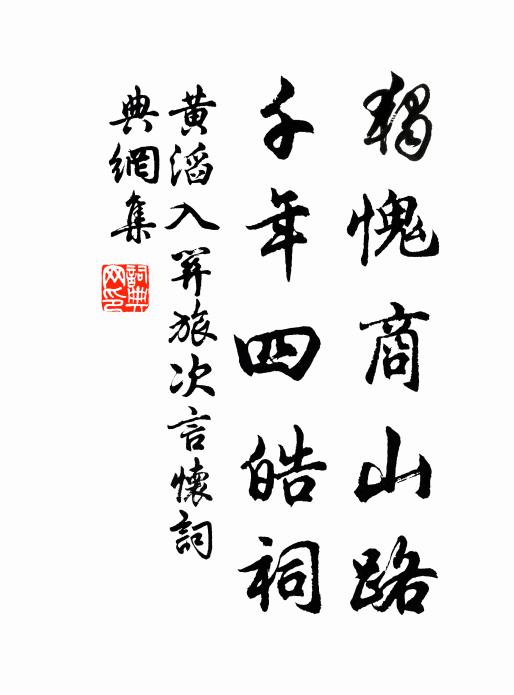 獨愧商山路
千年四皓祠
黄滔入關旅次言懷詞
典網集
詞典網印